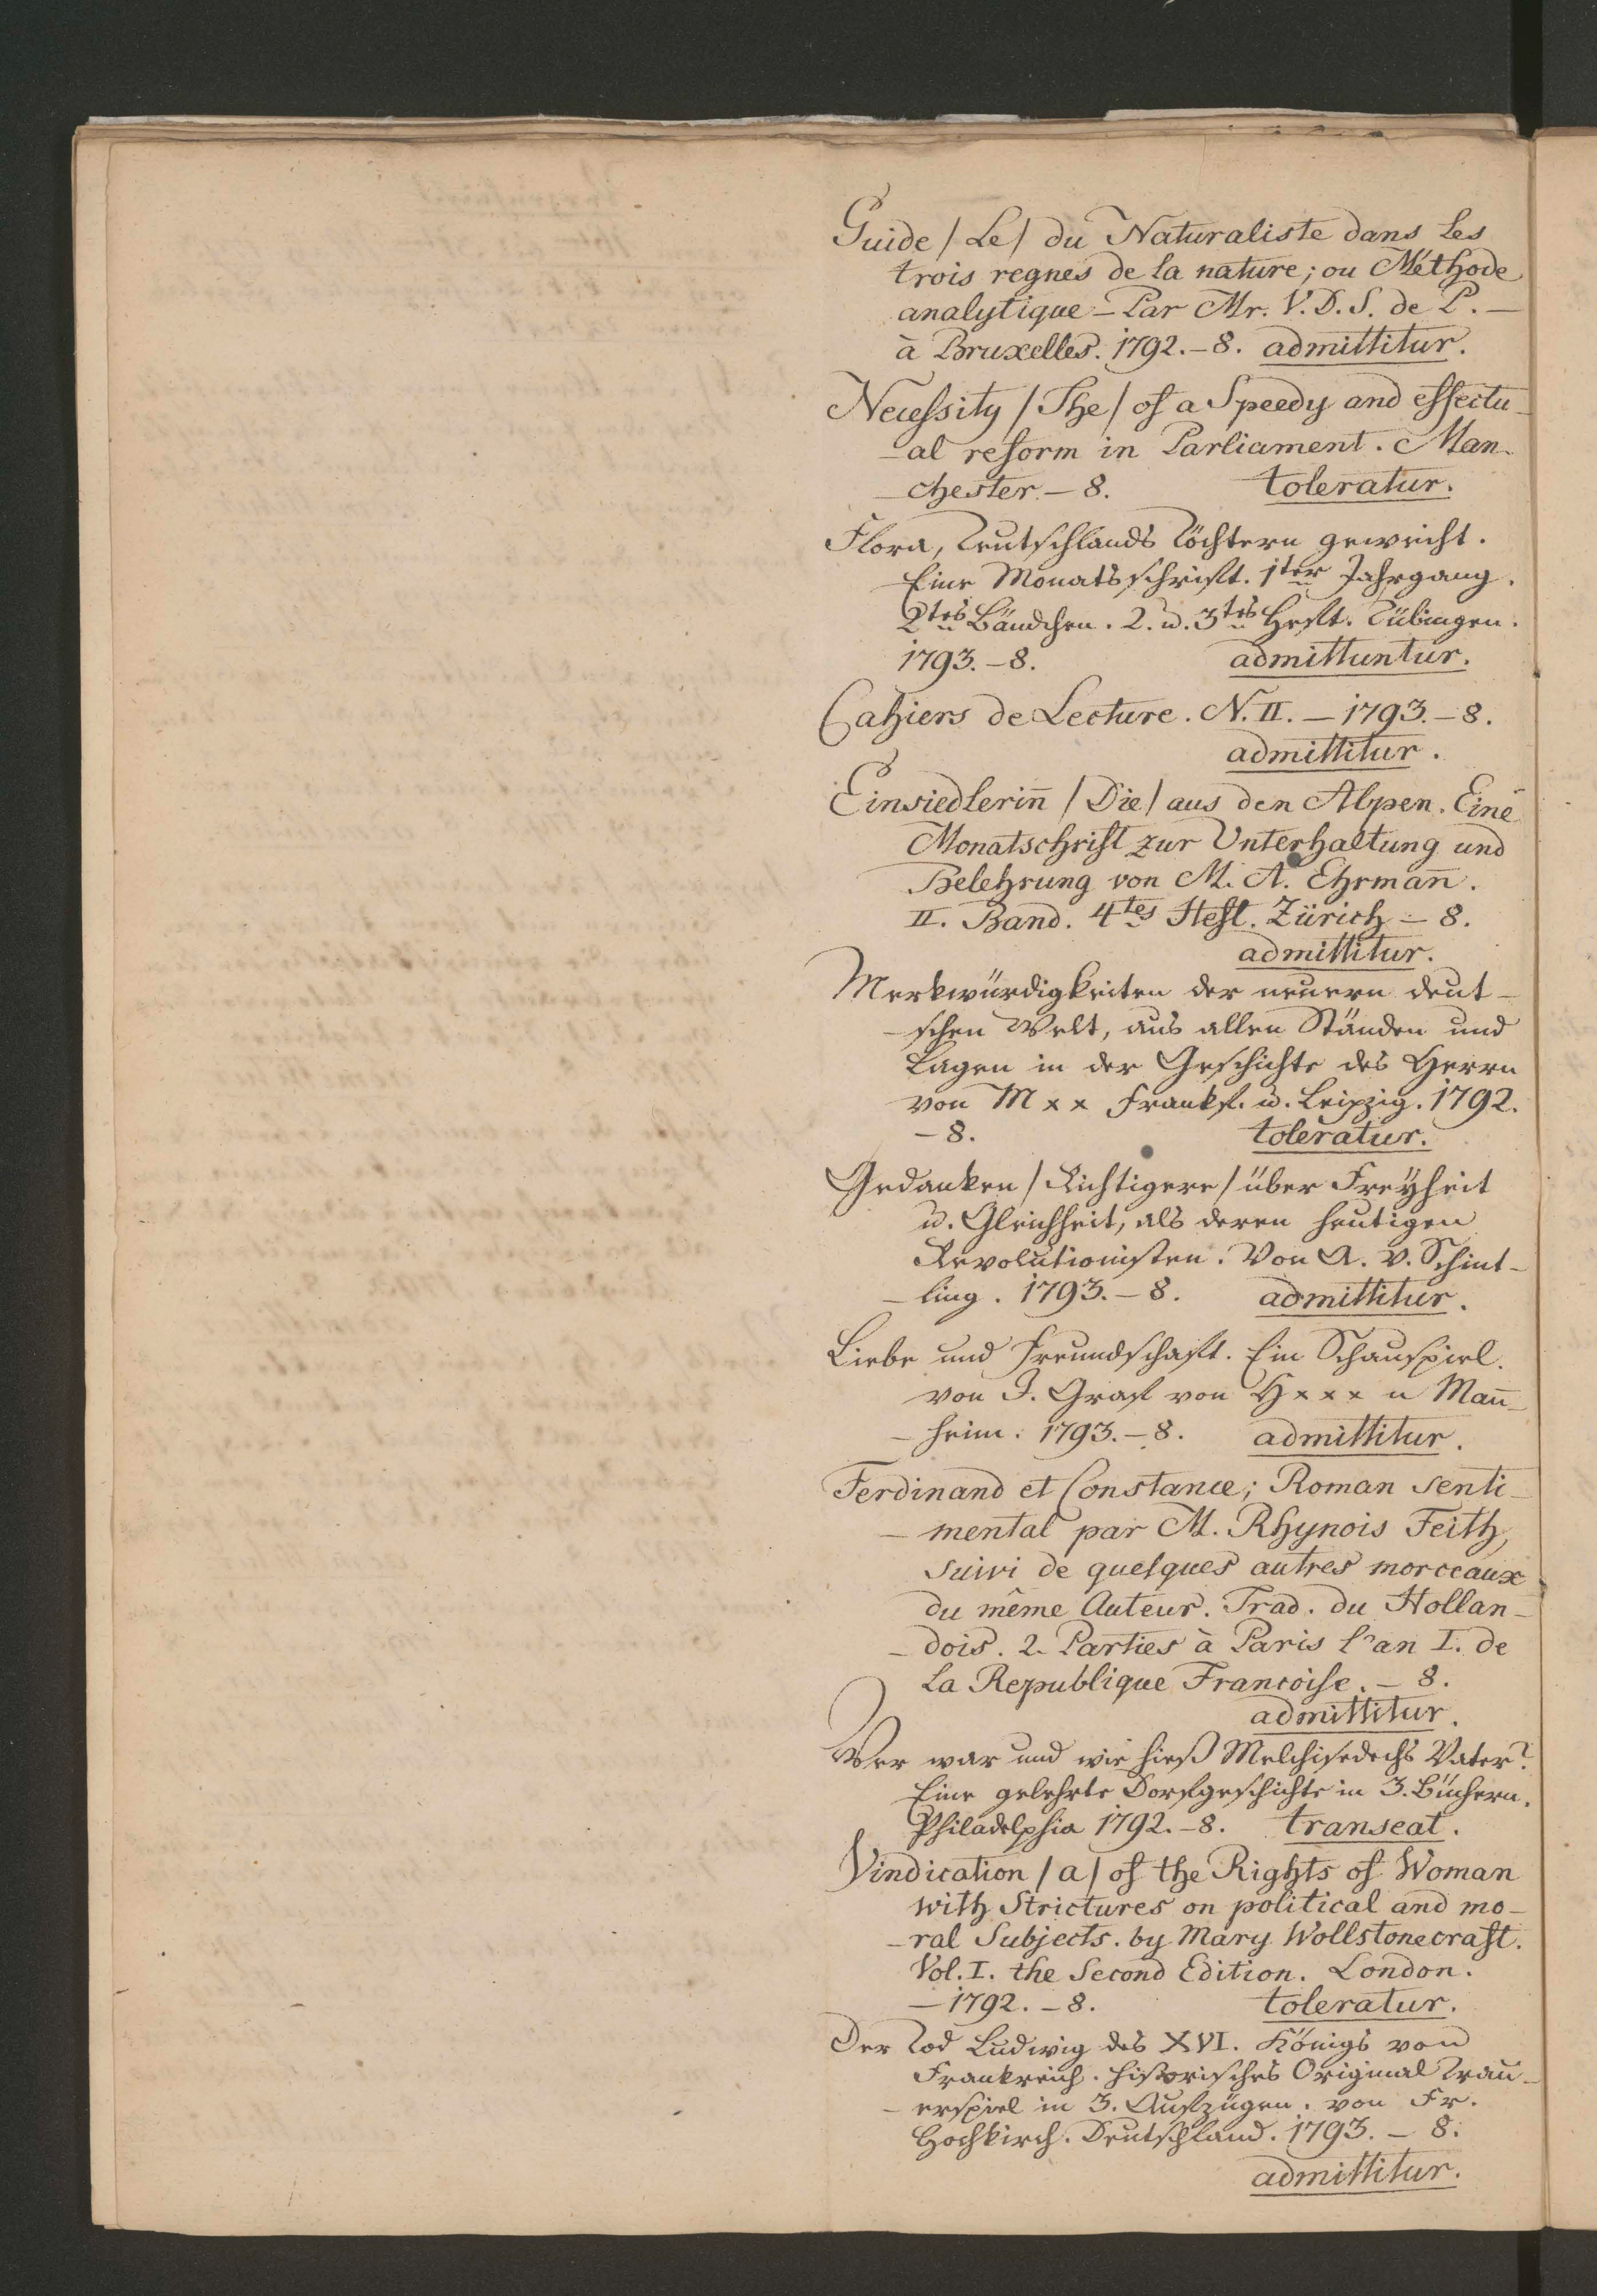 Guide /Le/ du Naturaliste dans les
trois regnes de la nature; ou Méthode
analytique – Par Mr. V. D. S. de P. –
à Bruxelles. 1792. – 8. admittitur.
Necessity /The/ of a Speedy and effectu-
-al reform in Parliament. Man-
-chester. – 8. toleratur.
Flora, Teutschlands Töchtern geweiht.
Eine Monatsschrift. 1ter Jahrgang.
2tes Bändchen. 2. u. 3tes Heft. Tübingen.
1793. – 8. admittuntur.
Cahiers de Lecture. N. II. – 1793. – 8.
admittitur.
Einsiedlerin̄ /Die/ aus den Alpen. Eine
Monatschrift zur Unterhaltung und
Belehrung von M. A. Ehrman̄.
II. Band. 4tes Heft. Zürich – 8.
admittitur.
Merkwürdigkeiten der neuern deut-
-schen Welt, aus allen Ständen und
Lagen in der Geschichte des Herrn
von M x x Frankf. u. Leipzig. 1792.
– 8. toleratur.
Gedanken /Richtigere/ über Freÿheit
u. Gleichheit, als deren heutigen
Revolutionisten. Von A. v. Schint-
-ling. 1793. – 8. admittitur.
Liebe und Freundschaft. Ein Schauspiel.
von J. Graf von H x x x n Man̄-
-heim. 1793. – 8. admittitur.
Ferdinand et Constance; Roman senti-
-mental par M. Rhynois Feith,
suivi de quelques autres morceaux
du même Auteur. Trad. du Hollan-
-dois. 2. Parties à Paris l'an I. de
la Republique Francoise. – 8.
admittitur.
Wer war und wie hieß Melchisedechs Vater?
Eine gelehrte Dorfgeschichte in 3. Büchern.
Philadelphia 1792. – 8. transeat.
Vindication /a/ of the Rights of Woman
with Strictures on political and mo-
-ral Subjects. by Mary Wollstonecraft.
Vol. I. the Second Edition. London.
– 1792. – 8. toleratur.
Der Tod Ludwig des XVI. Königs von
Frankreich. historisches Original Trau-
-erspiel in 3. Aufzügen. von Fr.
Hochkirch. Deutschland. 1793. – 8.
admittitur.